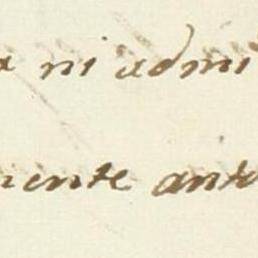 ni admi
ente ante